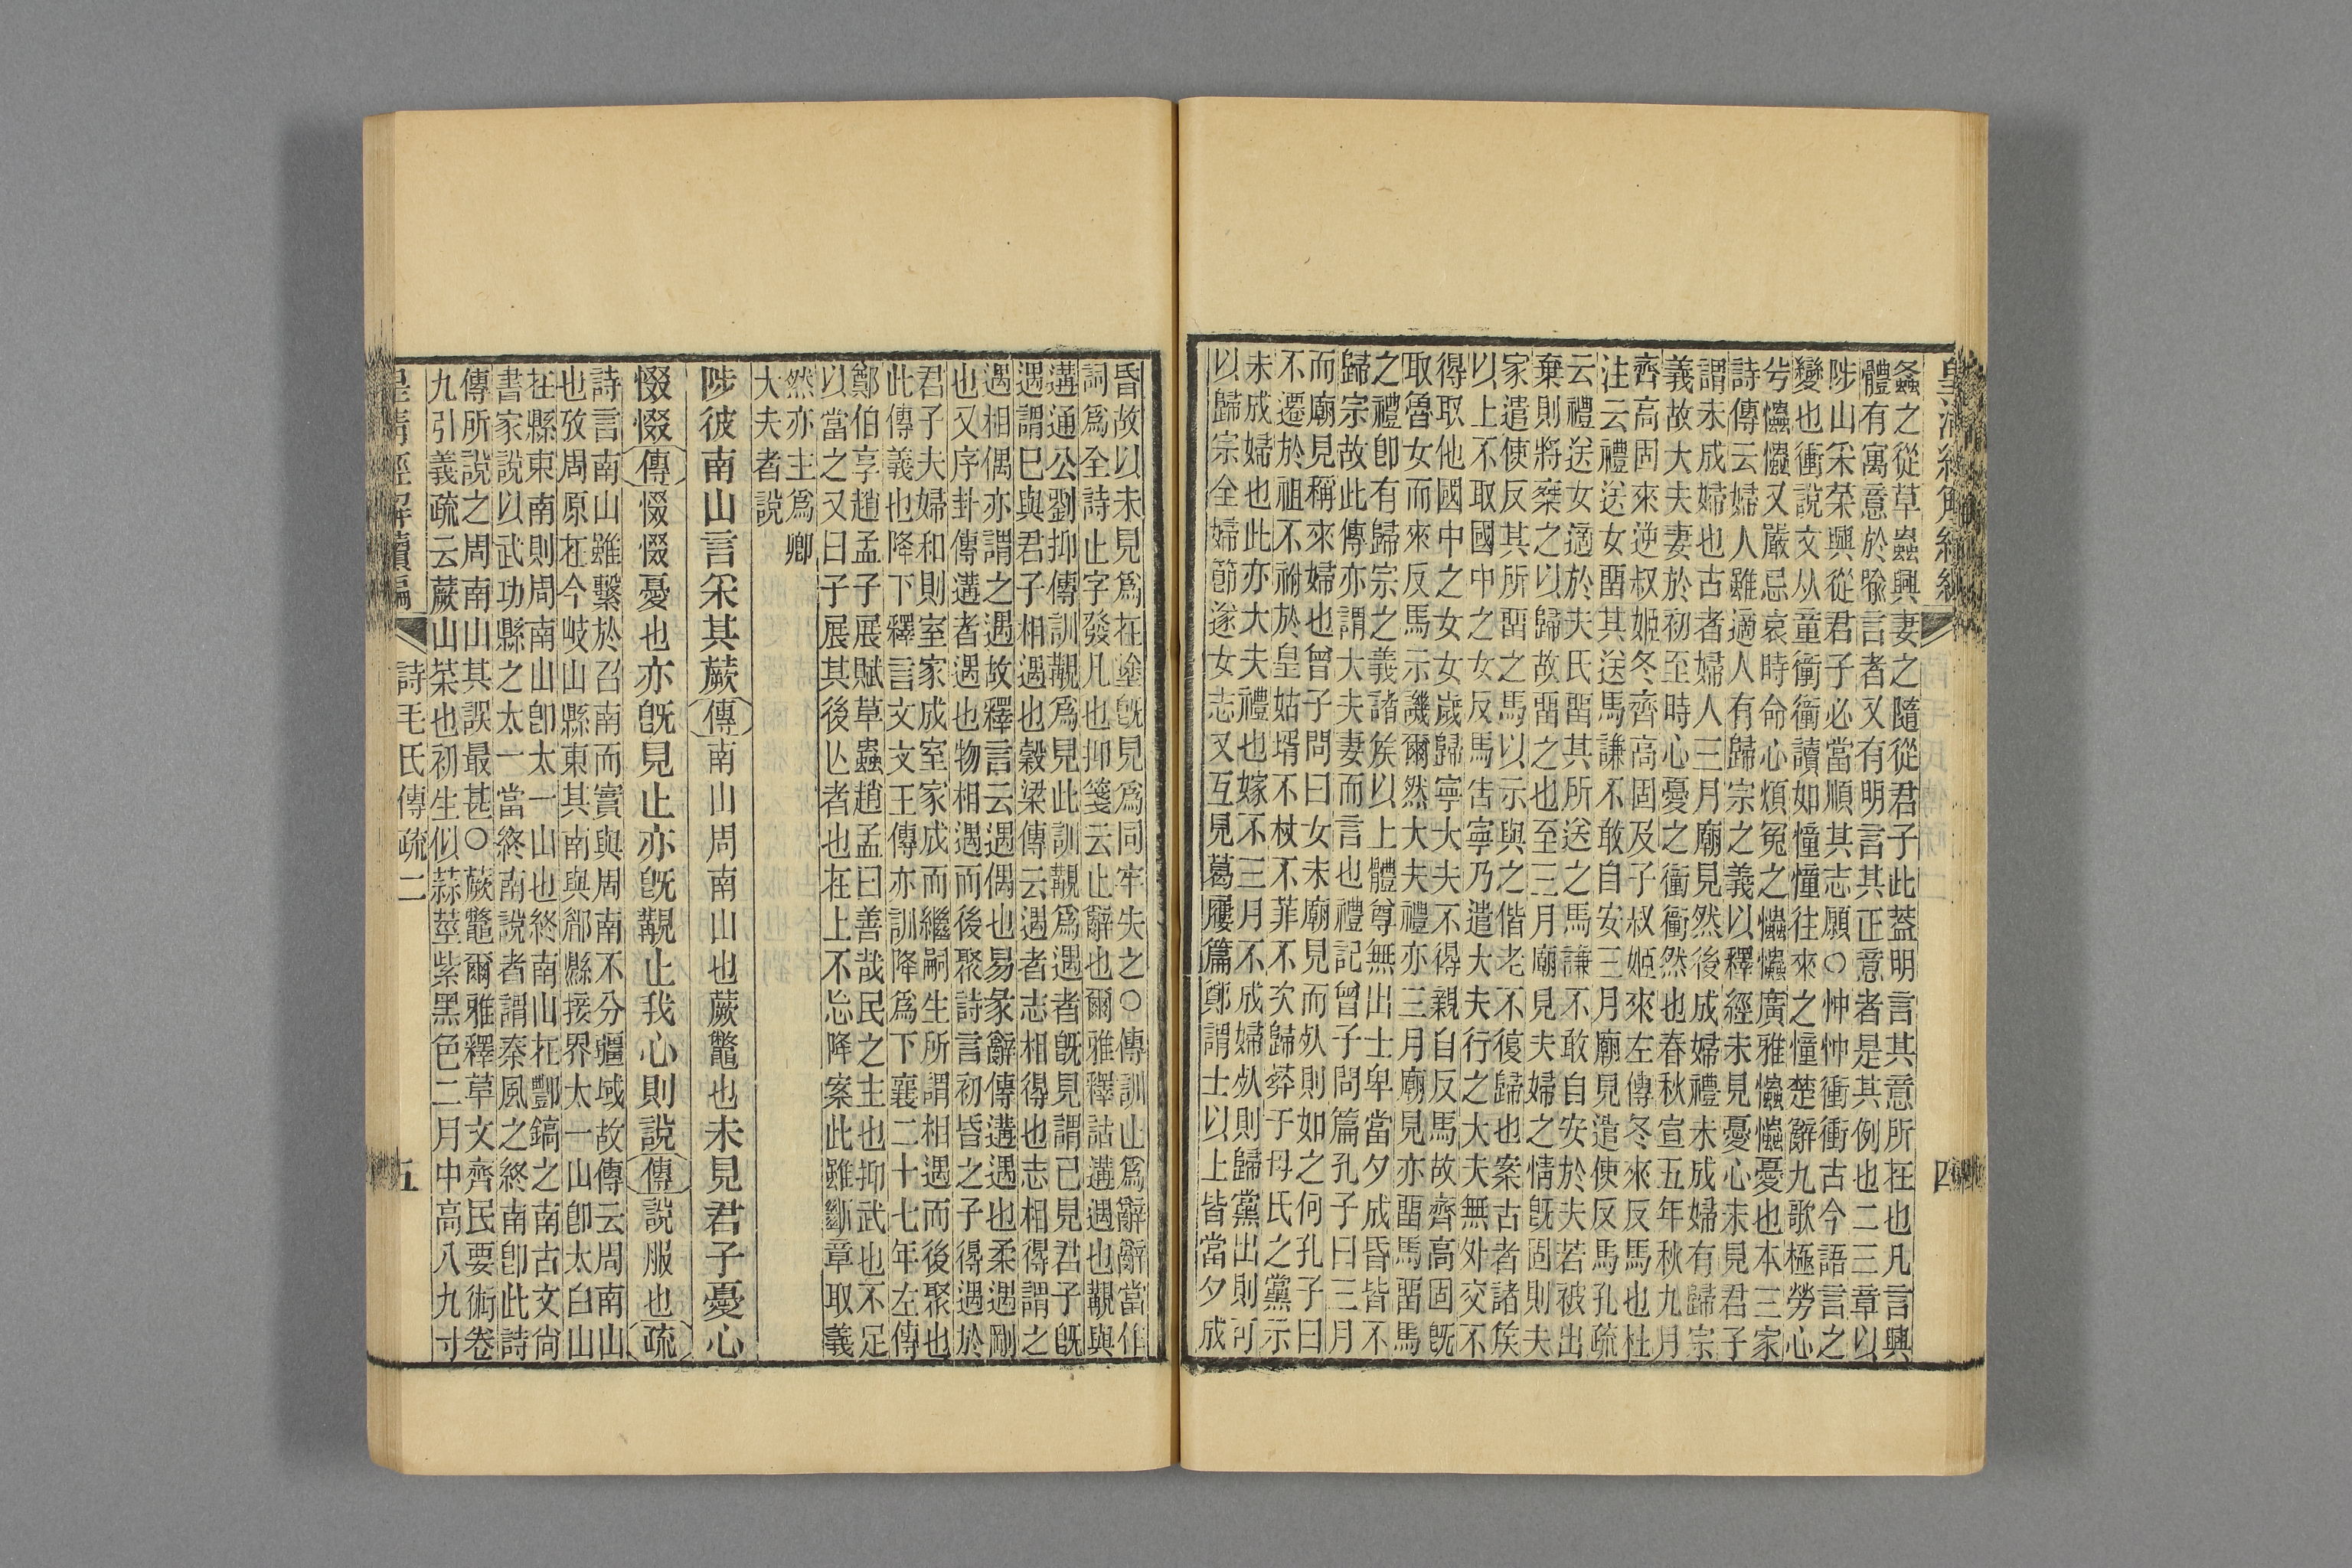 皇清經解續編
四
螽之從草蟲興妻之隨從君子此蓋明言其意所在也凡言興
體有寓意於喩言者又有明言其正意者是其例也二三章以
陟山采菜興從君子必當順其志願○忡忡衝衝古今語言之
變也衝說文从童衝衝讀如憧憧往來之憧楚辭九歌極勞心
兮𢥞𢥞又嚴忌哀時命心煩冤之𢥞𢥞廣雅𢥞𢥞憂也本三家
詩傳云婦人雖適人有歸宗之義以釋經未見憂心未見君子
謂未成婦也古者婦人三月廟見然後成婦禮未成婦有歸宗
義故大夫妻於初至時心憂之衝衝然也春秋宣五年秋九月
齊高固來逆叔姬冬齊高固及子叔姬來左傳冬來反馬也杜
注云禮送女畱其送馬謙不敢自安三月廟見遣使反馬孔疏
云禮送女適於夫氏畱其所送之馬謙不敢自安於夫若被出
棄則將椉之以歸故畱之也至三月廟見夫婦之情旣固則夫
家遣使反其所畱之馬以示與之偕老不復歸也案古者諸矦
以上不取國中之女反馬告寧乃遣大夫行之大夫無外交不
得取他國中之女女歲歸寧大夫不得親自反馬故齊高固旣
取魯女而來反馬示譏爾然大夫禮亦三月廟見亦畱馬畱馬
之禮卽有歸宗之義諸矦以上體尊無出士卑當夕成昏皆不
歸宗故此傳亦謂大夫妻而言也禮記曾子問篇孔子曰三月
而廟見稱來婦也曾子問曰女未廟見而𣦸則如之何孔子曰
不遷於祖不祔於皇姑壻不杖不菲不次歸葬于女氏之黨示
未成婦也此亦大夫禮也嫁不三月不成婦𣦸則歸黨出則可
以歸宗全婦節遂女志又互見葛屨篇鄭謂士以上皆當夕成
昏故以未見爲在塗旣見爲同牢失之○傳訓止爲辭辭當作
詞爲全詩止字發凡也抑箋云止辭也爾雅釋詁遘遇也覯與
遘通公劉抑傳訓覯爲見此訓覯爲遇者旣見謂已見君子旣
遇謂已與君子相遇也穀梁傳云遇者志相得也志相得謂之
遇相偶亦謂之遇故釋言云遇偶也易彖辭傳遘遇也柔遇剛
也又序卦傳遘者遇也物相遇而後聚詩言初昏之子得遇於
君子夫婦和則室家成室家成而繼嗣生所謂相遇而後聚也
此傳義也降下釋言文文王傳亦訓降爲下襄二十七年左傳
鄭伯享趙孟子展賦草蟲趙孟曰善哉民之主也抑武也不足
以當之又曰子展其後亾者也在上不忘降案此雖斷章取義
然亦主爲卿
大夫者說
陟彼南山言采其蕨傳南山周南山也蕨鼈也未見君子憂心
惙惙傳惙惙憂也亦旣見止亦旣覯止我心則說傳說服也疏
詩言南山雖繫於召南而實與周南不分疆域故傳云周南山
也攷周原在今岐山縣東其南與郿縣接界太一山卽太白山
在縣東南則周南山卽太一山也終南山在酆鎬之南古文尙
書家說以武功縣之太一當終南說者謂秦風之終南卽此詩
傳所說之周南山其誤最甚○蕨鼈爾雅釋草文齊民要術卷
九引義疏云蕨山菜也初生似蒜莖紫黑色二月中高八九寸
皇清經解續編
詩毛氏傳疏二
五